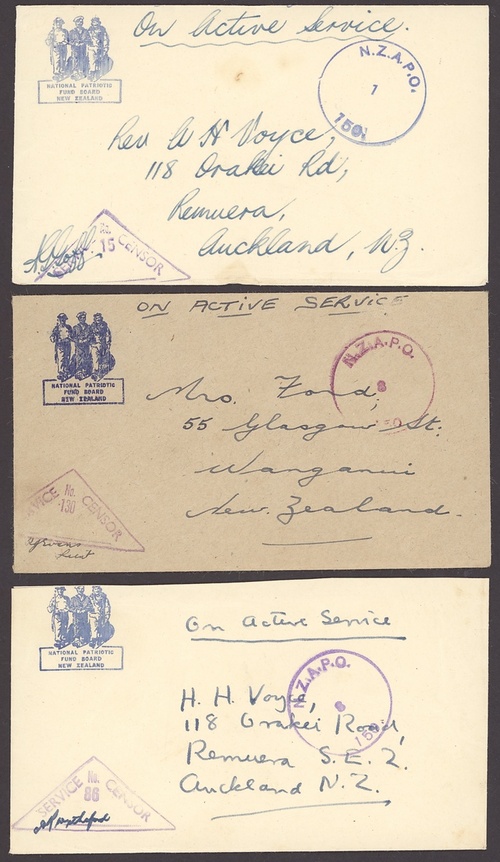 On Active Service.
NATIONAL PATRIOTIC
FUND BOARD
NEW ZEALAND
N.Z.A.P.O.
1
150.
Rev W H Voyce,
118 Orakei Rd,
Remuera,
Auckland, N.Z.
No.
15
CENSOR
ON ACTIVE SERVICE
NATIONAL PATRIOTIC
FUND BOARD
NEW ZEALAND
N.Z.A.P.O.
Mrs. Ford,
55 Glasgow St.
Wanganui
New Zealand.
No.
130
CENSOR
Lieut
On Active Service
NATIONAL PATRIOTIC
FUND BOARD
NEW ZEALAND
N.Z.A.P.O.
150
H. H. Voyce,
118 Orakei Road,
Remuera S.E.2.
Auckland N.Z.
SERVICE No. CENSOR
86